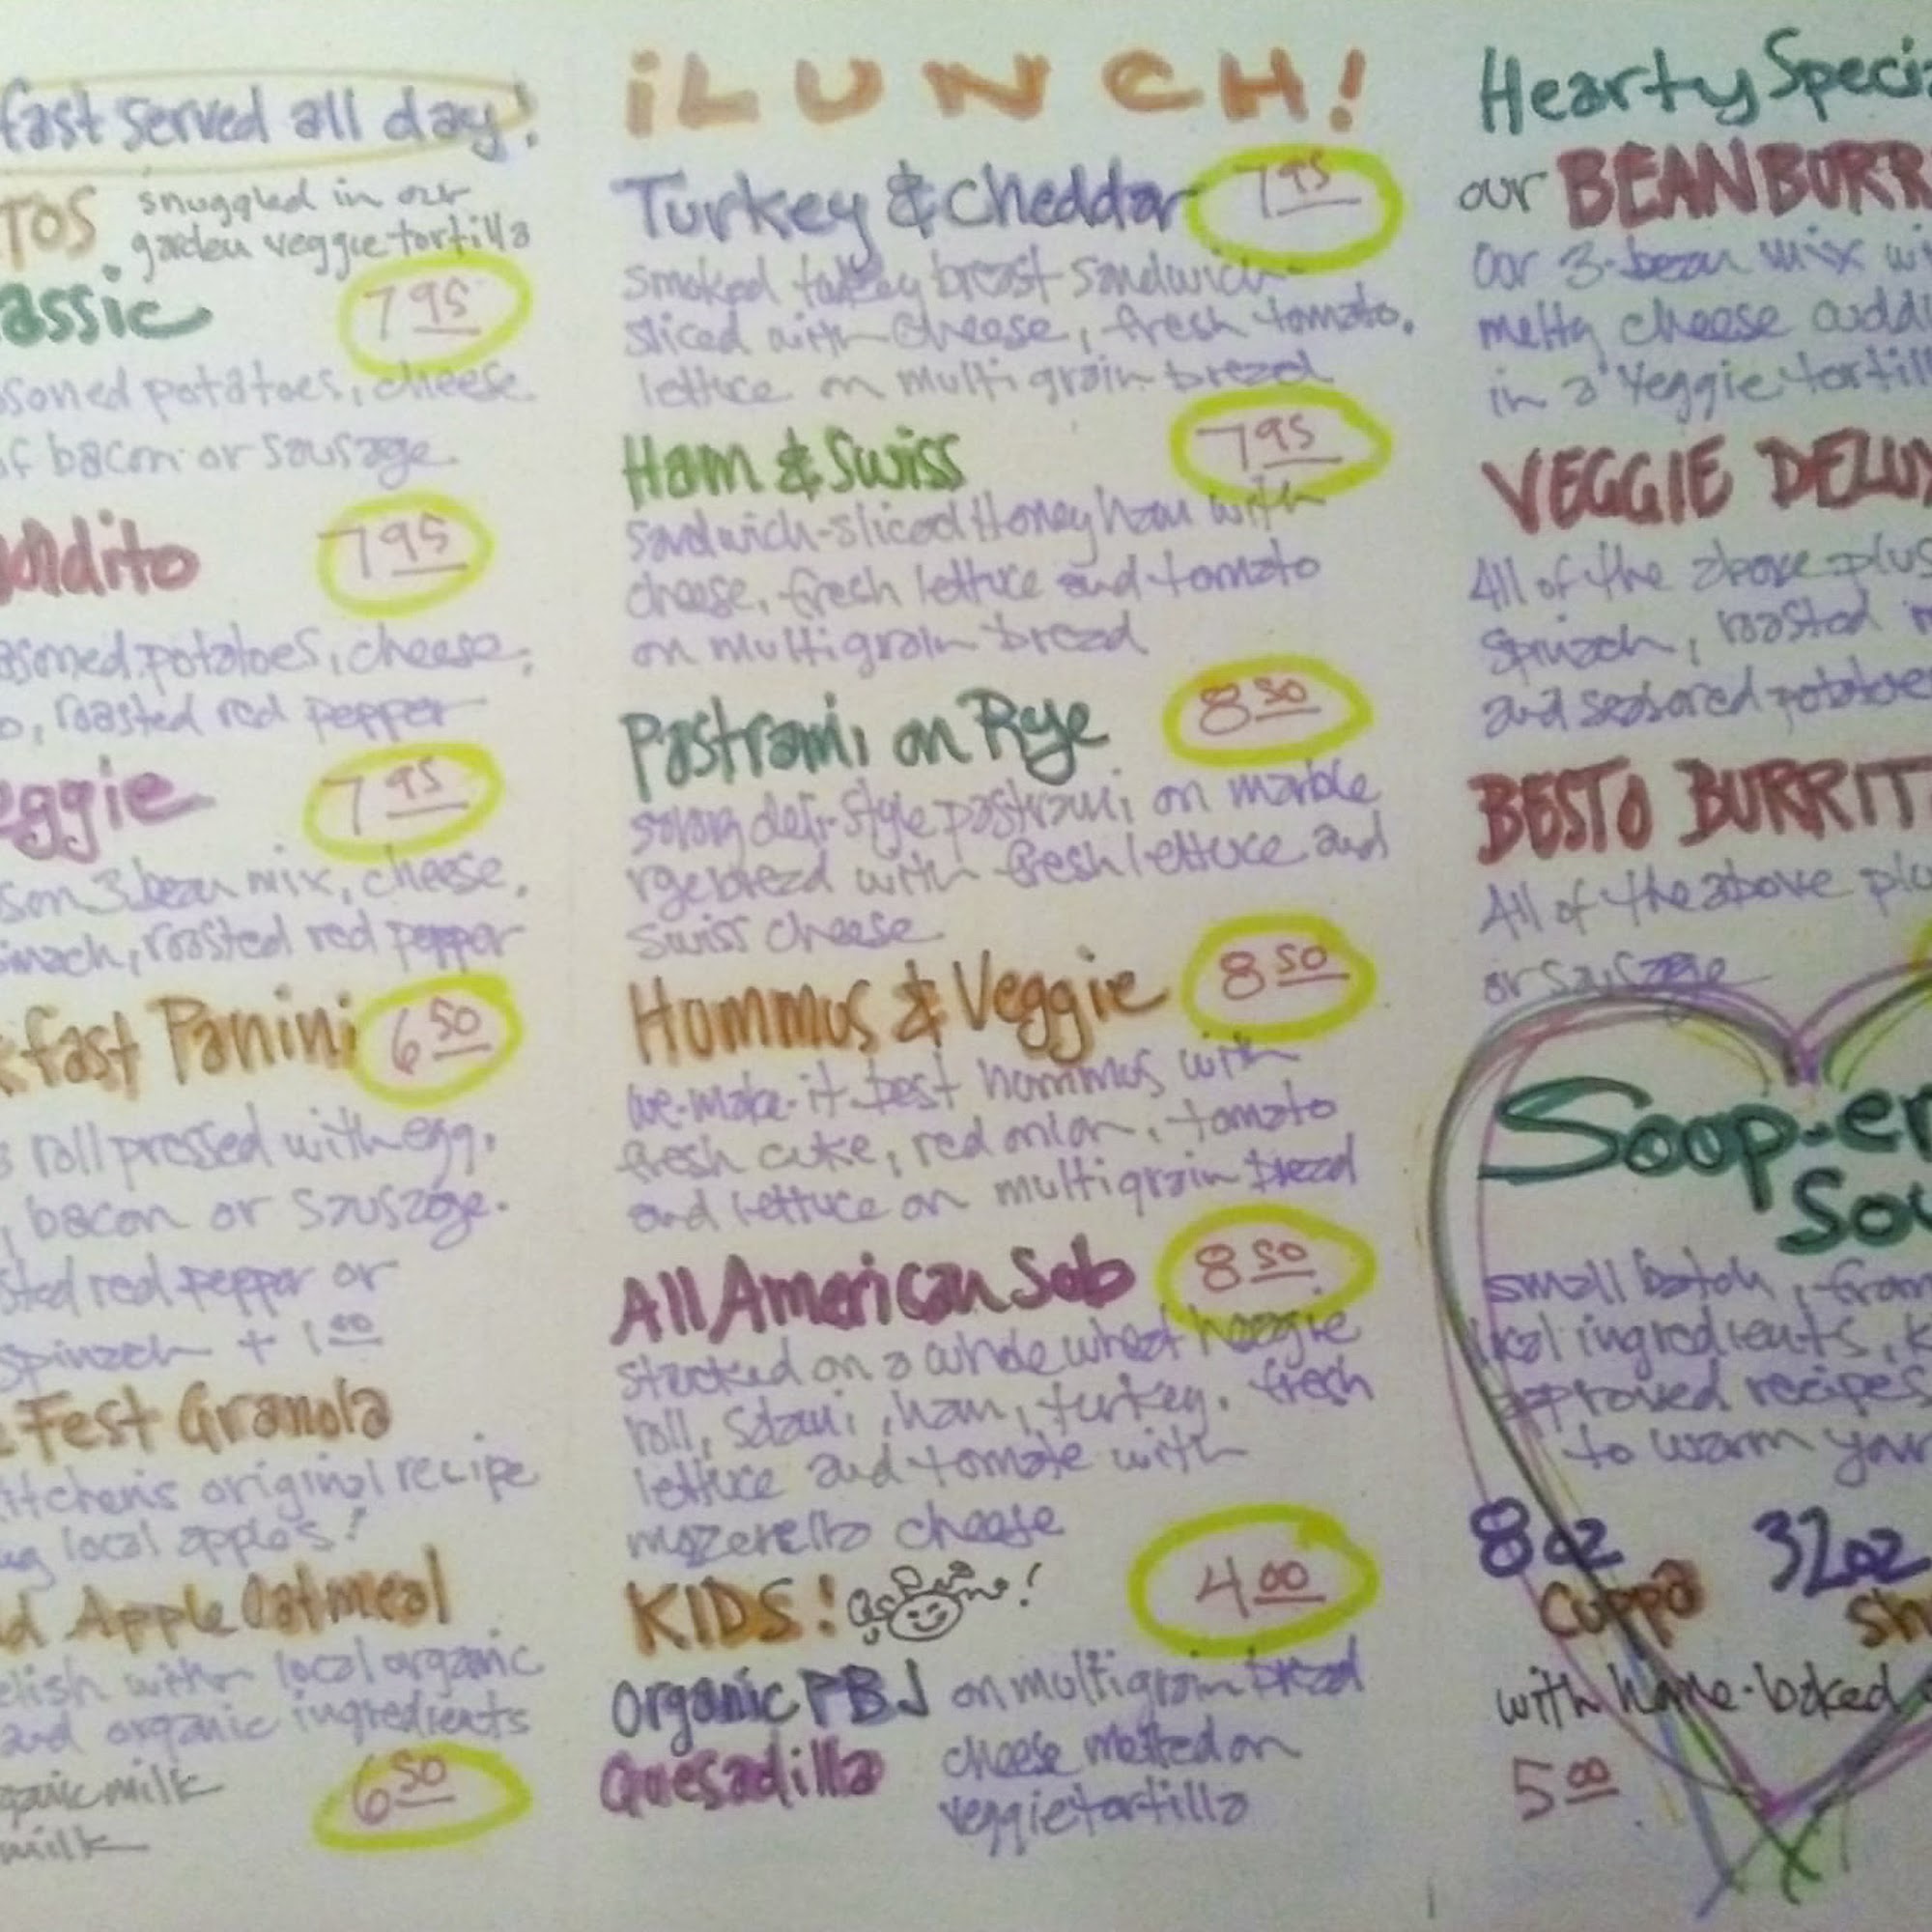 fast served all day!
TOS snuggled in our
garden veggie tortilla
assic 7 95
soned potatoes, cheese
of bacon or sausage
ddito 7 95
soned potatoes, cheese,
o, roasted red pepper
eggie 7 95
son 3 bean mix, cheese,
inach, roasted red pepper
kfast Panini 6 50
s roll pressed with egg,
, bacon or sausage.
sted red pepper or
spinach + 1 00
e Fest Granola
itchen's original recipe
ng local apples!
d Apple Oatmeal
elish with local organic
and organic ingredients
ganic milk 6 50
milk
¡LUNCH!
Turkey & Cheddar 7 95
smoked turkey breast sandwich
sliced with cheese, fresh tomato,
lettuce on multigrain bread
Ham & Swiss 7 95
sandwich-sliced Honey ham with
cheese, fresh lettuce and tomato
on multigrain bread
Pastrami on Rye 8 50
deli-style pastrami on marble
rye bread with fresh lettuce and
swiss cheese
Hummus & Veggie 8 50
we-make-it-best hummus with
fresh cuke, red onion, tomato
and lettuce on multigrain bread
All American Sub 8 50
stacked on a whole wheat hoagie
roll, salami, ham, turkey, fresh
lettuce and tomato with
mozerella cheese
KIDS! 4 00
organic PBJ on multigrain bread
Quesadilla cheese melted on
veggie tortilla
Hearty Specia
our BEAN BURR
our 3-bean mix wi
melty cheese cuddl
in a veggie tortill
VEGGIE DELUX
All of the above plus
spinach, roasted r
and seasoned potatoe
BESTO BURRIT
All of the above plu
or sausage
Soup-er
Sou
small batch, from
local ingredients, k
approved recipes
to warm your
8 oz 32 oz
Cuppa Sh
with home-baked
5 00